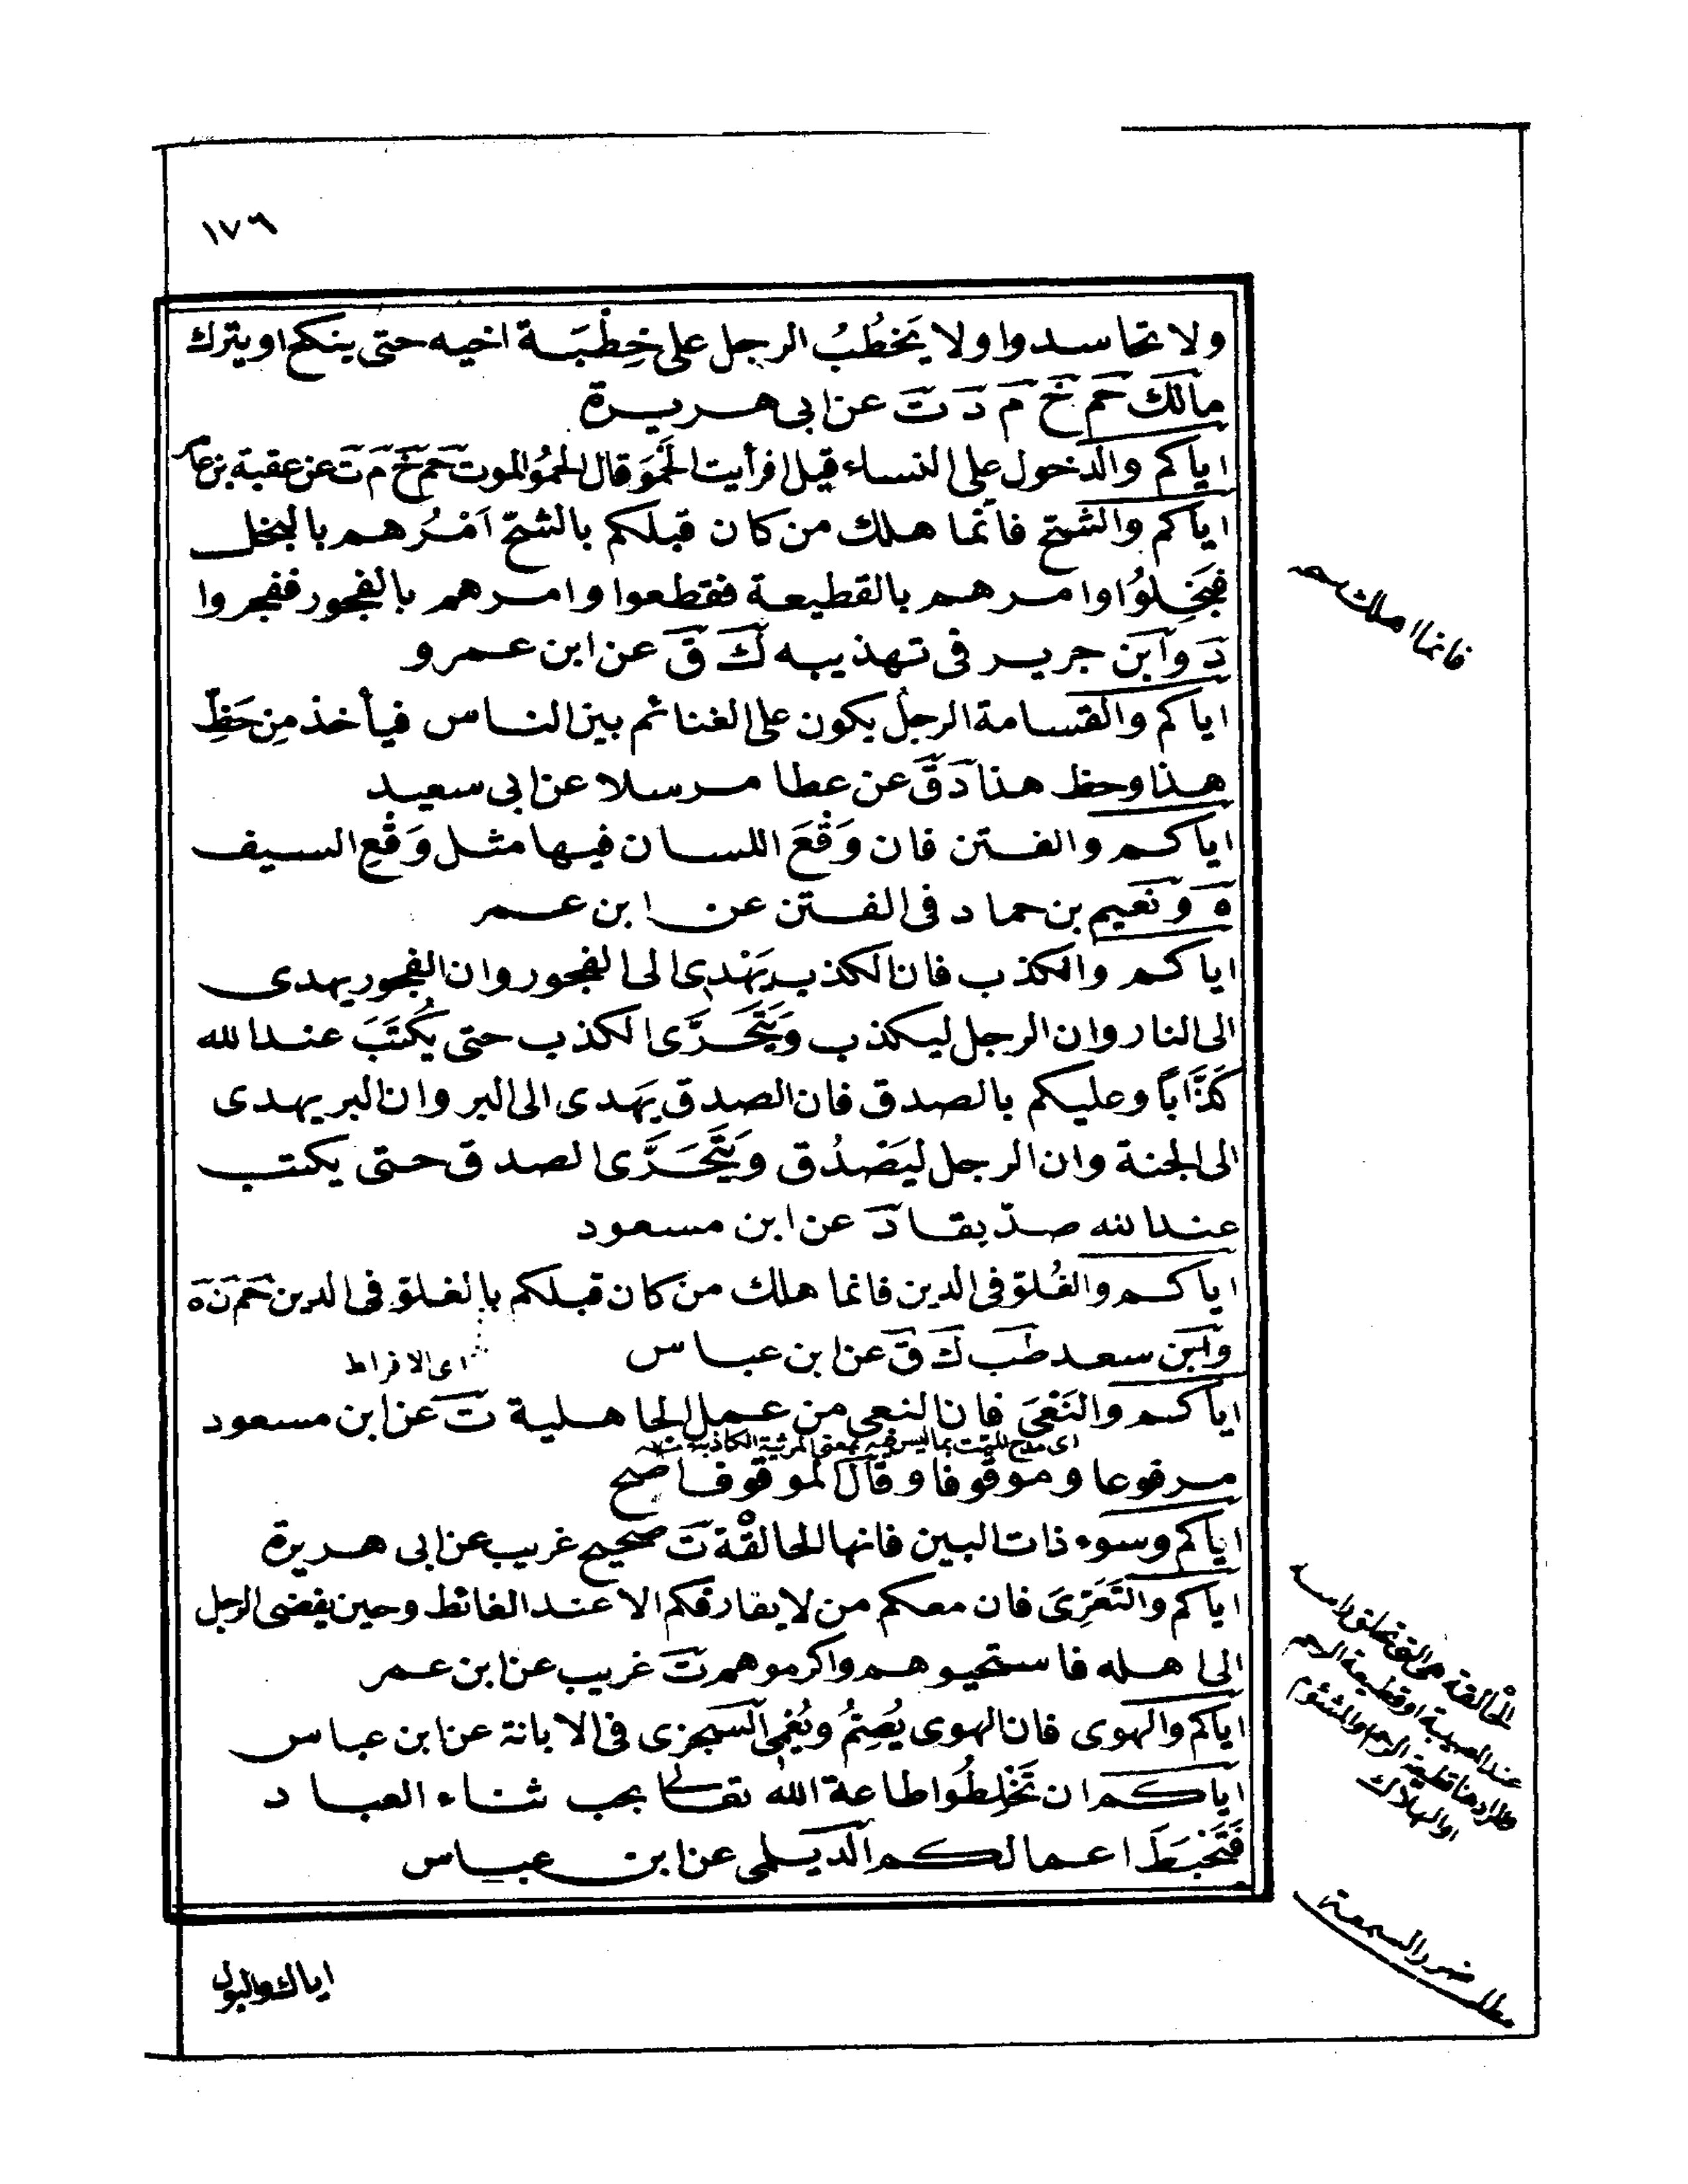 ١٧٦
ولا تحاسدوا ولا يَخطُبُ الرجل على خِطْبَة اخيه حتى ينكح او يترك
مالك حم خ م د ت عن ابى هريرة
اياكم والدخول على النساء قيل افرأيت الحَمْوَ قال الحمُوُ الموت حم خ م ت عن عقبة بن عامر
اياكم والشح فانما هلك من كان قبلكم بالشحّ اَمَرُهم بالبخل
فبَخِلوُا وامرهم بالقطيعة فقطعوا وامرهم بالفجور ففجروا
د وابن جرير فى تهذيبه ك ق عن ابن عمرو
اياكم والقسامة الرجل يكون على الغنائم بين الناس فيأخذ مِن حَظِّ
هذا وحظ هذا د ق عن عطا مرسلا عن ابى سعيد
اياكم والفتن فان وَقْعَ اللسان فيها مثل وَقْعِ السيف
ه ونعيم بن حماد فى الفتن عن ابن عمر
اياكم والكذب فان الكذب يَهْدِى الى الفجور وان الفجور يهدى
الى النار وان الرجل ليكذب وَيَتَحَرَّى الكذب حتى يُكْتَبَ عند الله
كَذَّاباً وعليكم بالصدق فان الصدق يَهدى الى البر وان البر يهدى
الى الجنة وان الرجل ليَصْدُق وَيَتَحَرَّى الصدق حتى يكتب
عند الله صدّيقا د عن ابن مسعود
اياكم والغُلوّ فى الدين فانما هلك من كان قبلكم بالغلوّ فى الدين حم ن ه
وابن سعد طب ك ق عن ابن عباس
اى الافراط
اياكم والنَعْىَ فان النعى من عمل الجاهلية ت عن ابن مسعود
اى مدح الميت بما ليس فيه بمعنى المرثية الكاذبة
مرفوعا وموقوفا وقال الموقوف اصح
اياكم وسوء ذات البين فانها الحالقة ت صحيح غريب عن ابى هريرة
اياكم والتَعَرِّىَ فان معكم من لا يفارقكم الا عند الغائط وحين يفضى الرجل
الى اهله فاستحيوهم واكرموهم ت غريب عن ابن عمر
اياكم والهوى فان الهوى يُصِمُّ ويُعْمِى السجزى فى الابانة عن ابن عباس
اياكم ان تَخْلِطُوا طاعة الله تعالى بحب ثناء العباد
فَتَحْبَطَ اعمالكم الديلمى عن ابن عباس
اياك والبول
فانما اهلك
الحالقة هى التى تحلق
عند المصيبة او قطيعة الرحم
والمراد هنا قطيعة الرحم والمشئوم
او الهلاك
مطلب ضرر السمعة